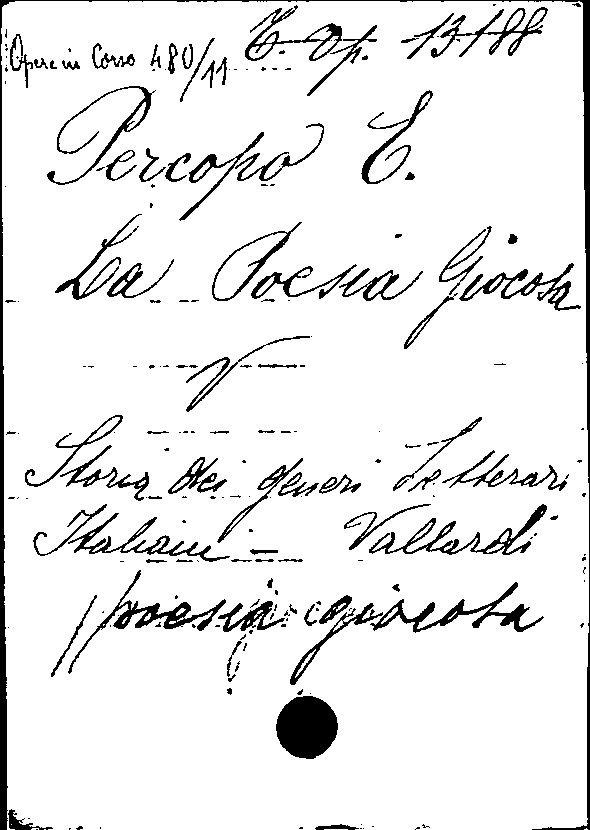 Opere in Corso 480/11 T. Op. 13188
Percopo E.
La Poesia Giocosa
V
Storia dei generi Letterari
Italiani - Vallardi
poesia giocosa